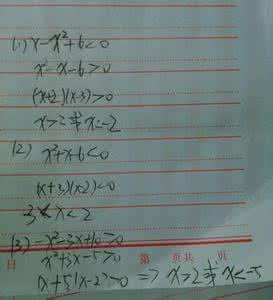 (1) x-x²+6<0
x²-x-6>0
(x+2)(x-3)>0
x>3或x<-2
(2) x²+x-6<0
(x+3)(x-2)<0
-3<x<2
(3) -x²-3x+10≥0
x²+3x-5≥0
日 第 页共 页
(x+5)(x-2)>0 => x>2或x<-5